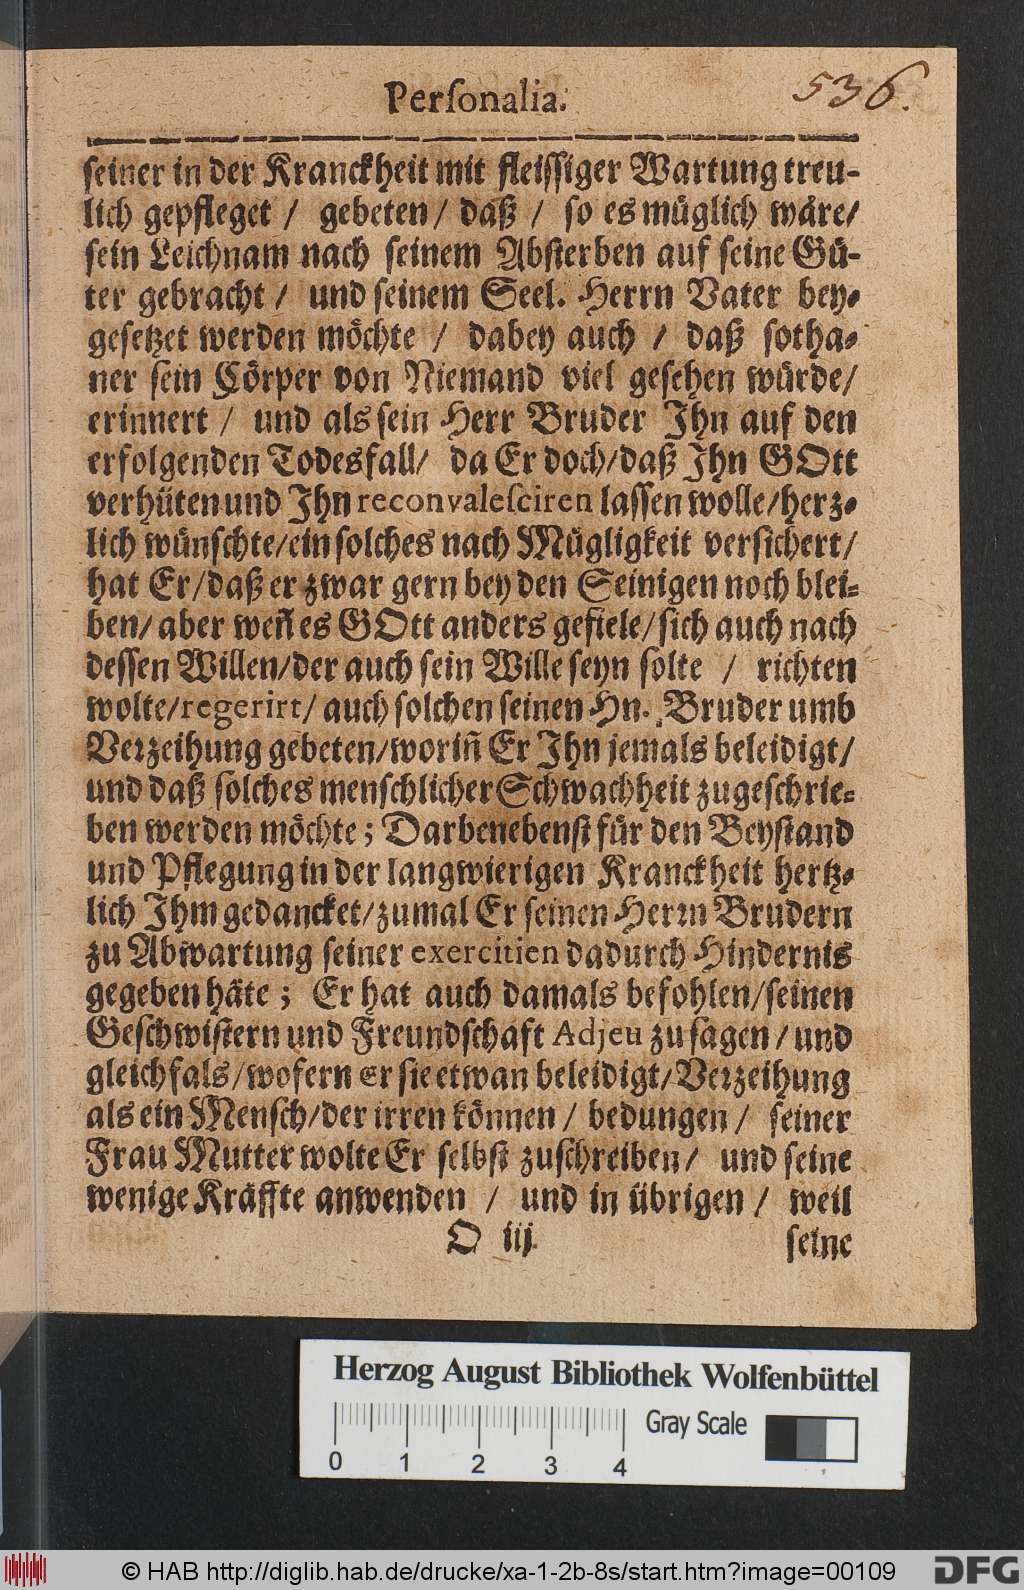 Perſonalia.
536.
ſeiner in der Kranckheit mit fleiſſiger Wartung treu-
lich gepfleget / gebeten / daß / ſo es müglich wäre/
ſein Leichnam nach ſeinem Abſterben auf ſeine Gü-
ter gebracht / und ſeinem Seel. Herrn Vater bey-
geſetzet werden möchte / dabey auch / daß ſotha-
ner ſein Cörper von Niemand viel geſehen würde/
erinnert / und als ſein Herr Bruder Ihn auf den
erfolgenden Todesfall/ da Er doch/daß Ihn GOtt
verhüten und Ihn reconvaleſciren laſſen wolle/herz-
lich wünſchte/ein ſolches nach Mügligkeit verſichert/
hat Er/daß er zwar gern bey den Seinigen noch blei-
ben/ aber weñ es GOtt anders gefiele/ſich auch nach
deſſen Willen/der auch ſein Wille ſeyn ſolte / richten
wolte/regerirt/ auch ſolchen ſeinen Hn. Bruder umb
Verzeihung gebeten/woriñ Er Ihn jemals beleidigt/
und daß ſolches menſchlicher Schwachheit zugeſchrie-
ben werden möchte; Darbenebenſt für den Beyſtand
und Pflegung in der langwierigen Kranckheit hertz-
lich Ihm gedancket/zumal Er ſeinen Herrn Brudern
zu Abwartung ſeiner exercitien dadurch Hindernis
gegeben häte; Er hat auch damals befohlen/ſeinen
Geſchwiſtern und Freundſchaft Adjeu zu ſagen / und
gleichfals/wofern er ſie etwan beleidigt/Verzeihung
als ein Menſch/der irren können / bedungen / ſeiner
Frau Mutter wolte Er ſelbſt zuſchreiben/ und ſeine
wenige Kräffte anwenden / und in übrigen / weil
O iij
ſeine
Herzog August Bibliothek Wolfenbüttel
Gray Scale
0 1 2 3 4
© HAB http://diglib.hab.de/drucke/xa-1-2b-8s/start.htm?image=00109
DFG